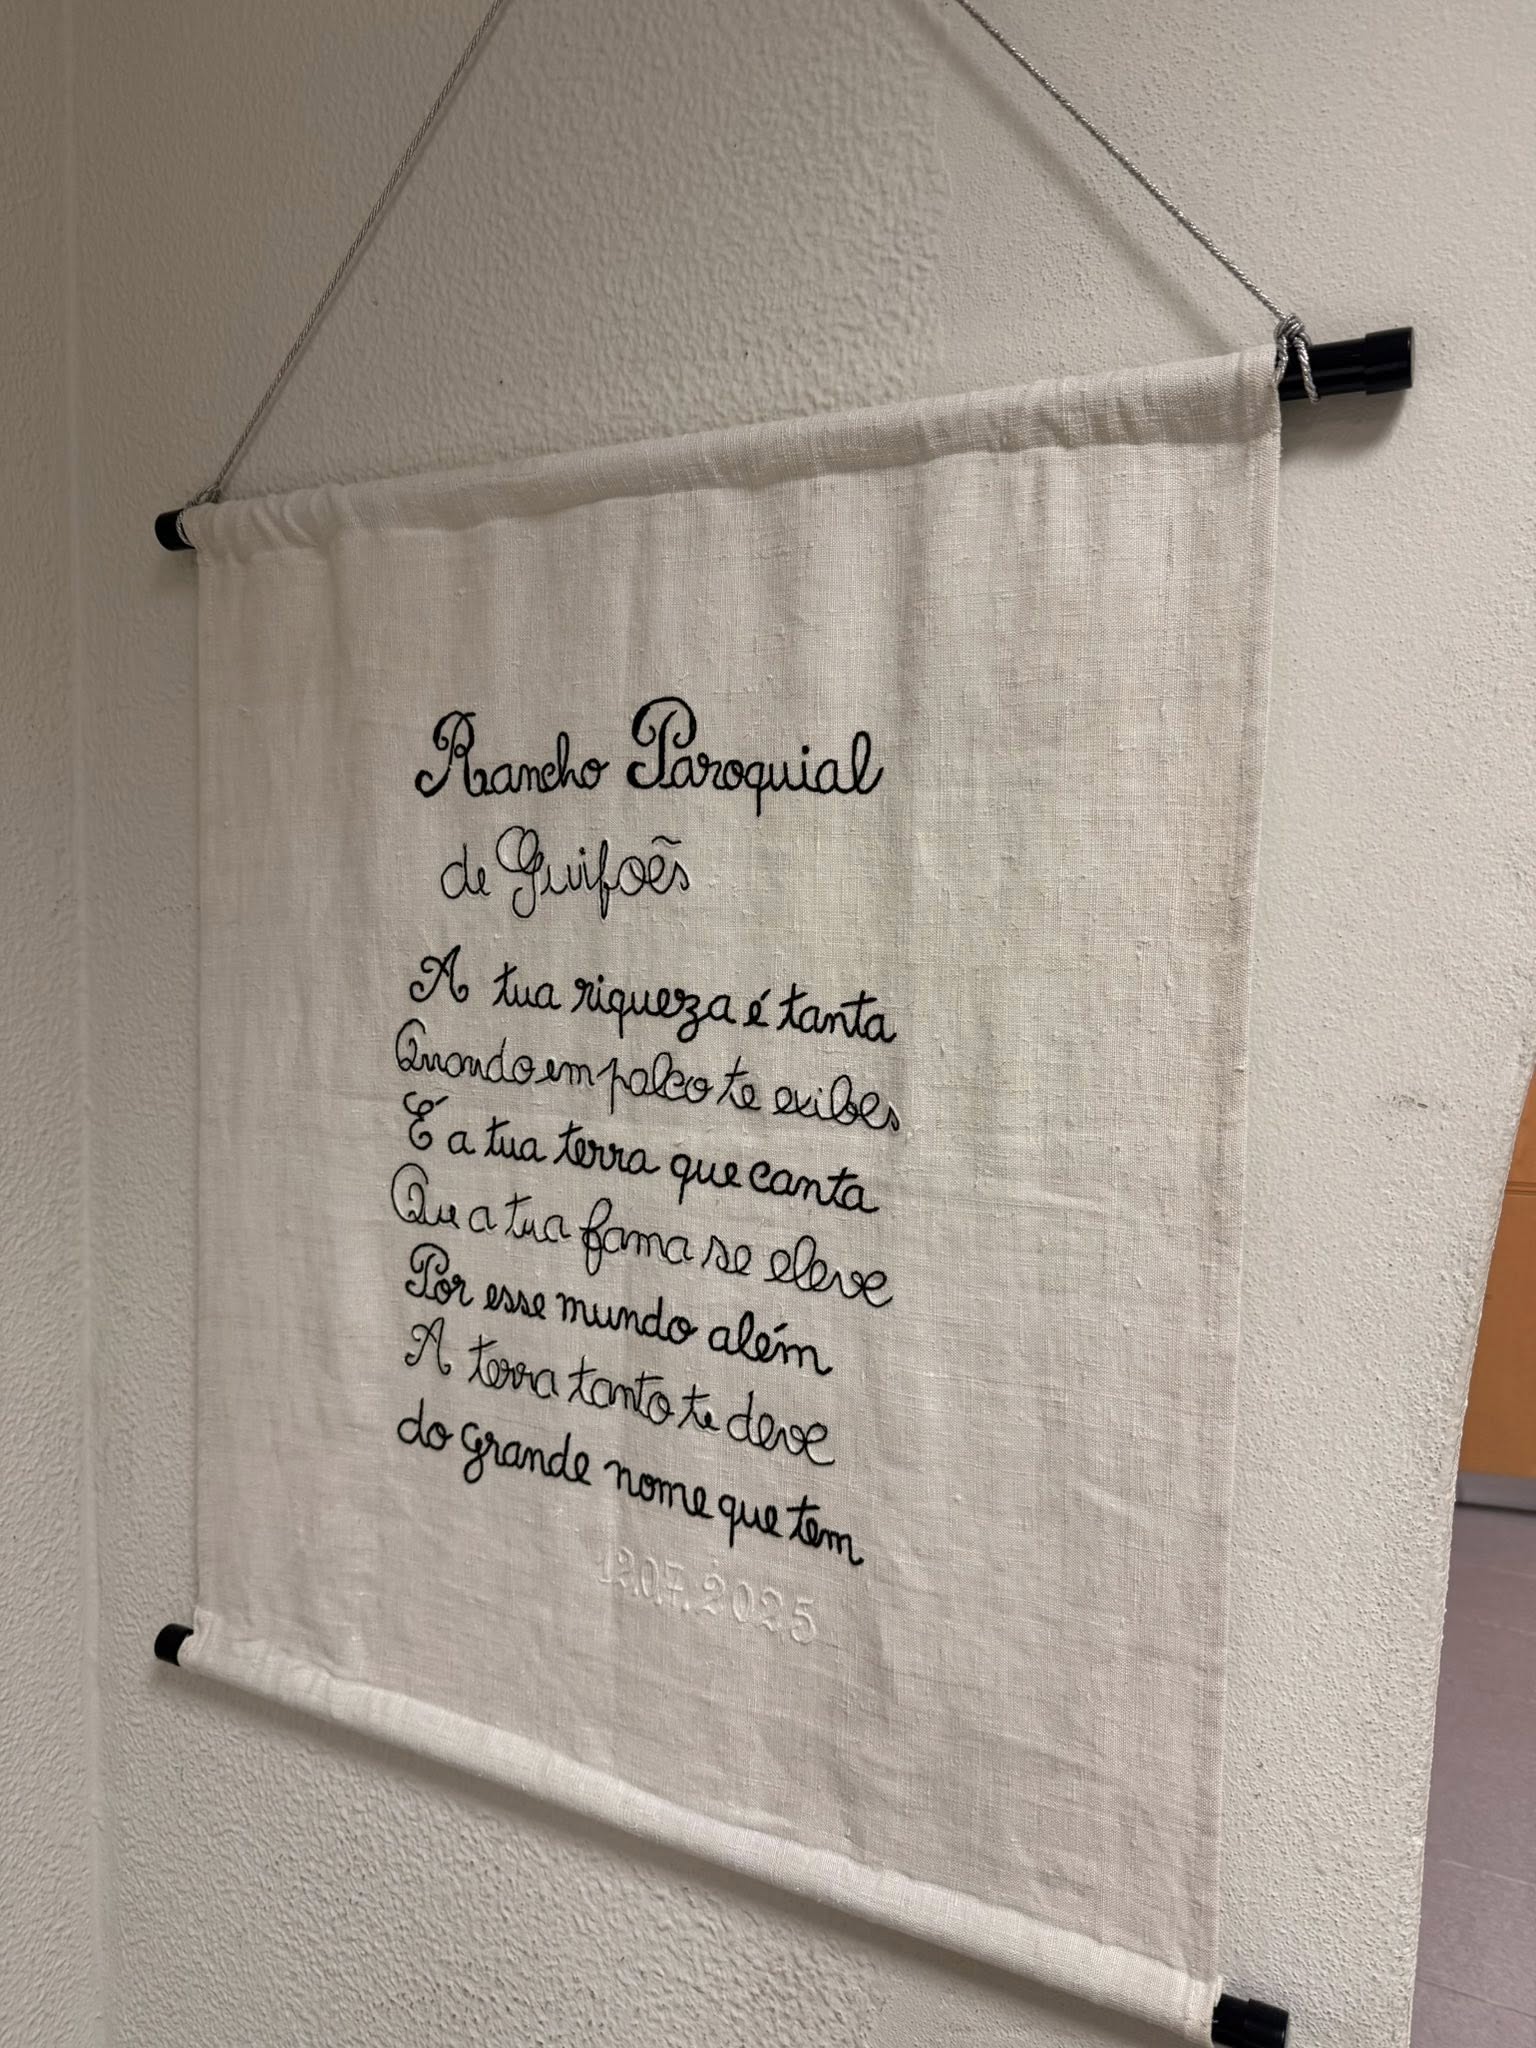 Rancho Paroquial
de Guifoẽs
A tua riqueza é tanta
Quando em palco te exibes
É a tua terra que canta
Que a tua fama se eleve
Por esse mundo além
A terra tanto te deve
do grande nome que tem
12.07.2025